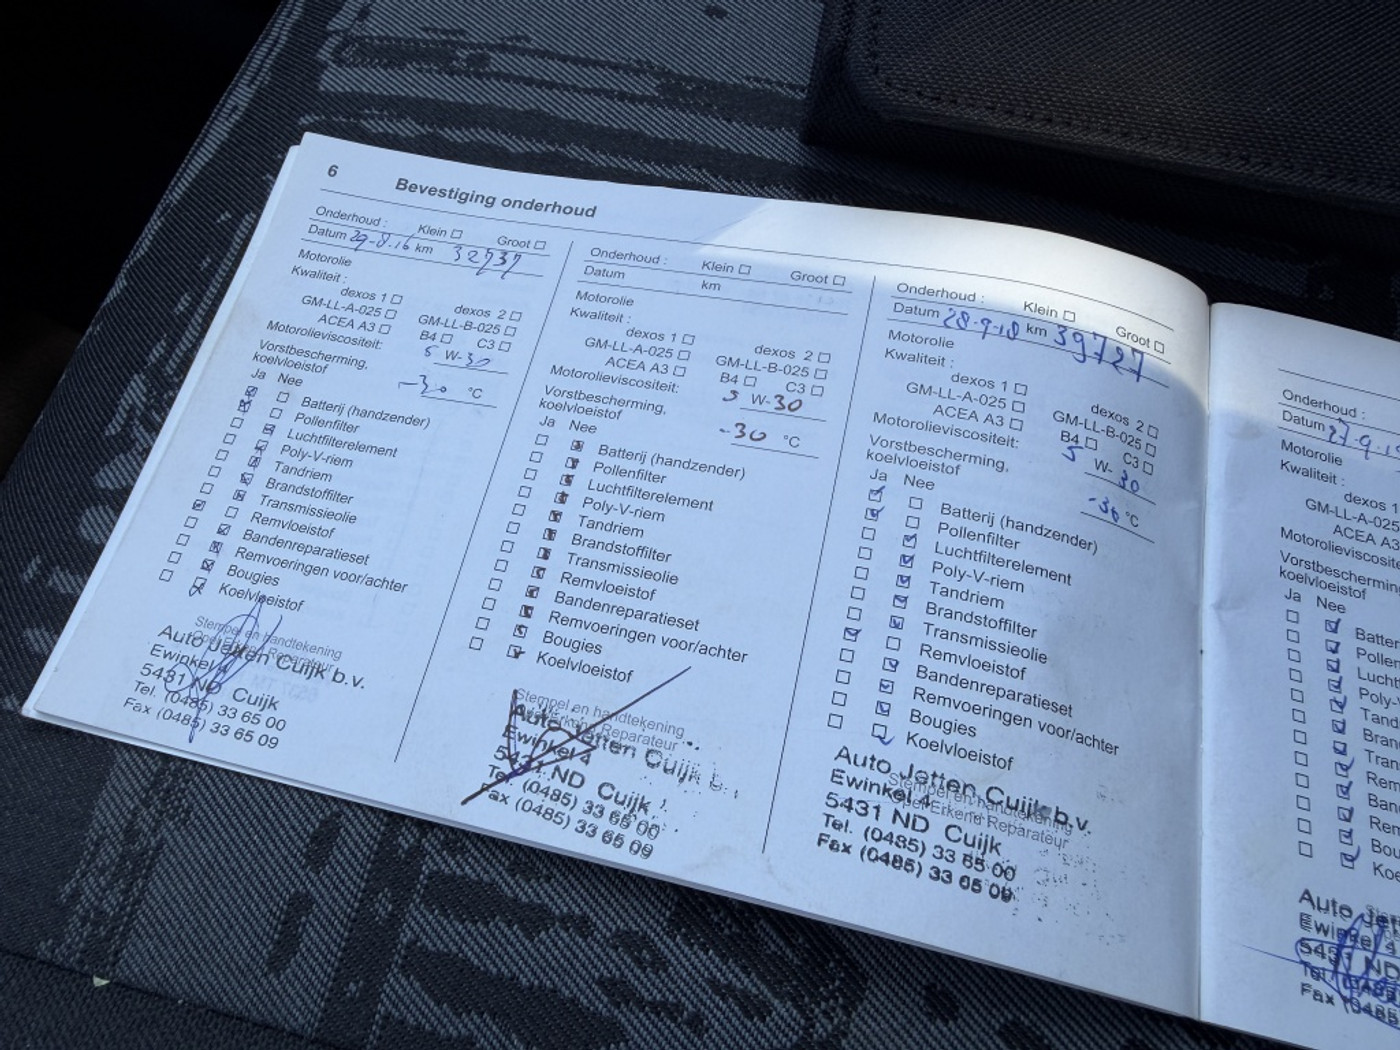 6 Bevestiging onderhoud
Onderhoud : Klein Groot
Datum 29-8-16 km 32737
Motorolie
Kwaliteit :
dexos 1 dexos 2
GM-LL-A-025 GM-LL-B-025
ACEA A3 B4 C3
Motorolieviscositeit: 5 W-30
Vorstbescherming,
koelvloeistof -30 °C
Ja Nee
Batterij (handzender)
Pollenfilter
Luchtfilterelement
Poly-V-riem
Tandriem
Brandstoffilter
Transmissieolie
Remvloeistof
Bandenreparatieset
Remvoeringen voor/achter
Bougies
Koelvloeistof
Stempel en handtekening
Opel Erkend Reparateur
Auto Jetten Cuijk b.v.
Ewinkel 4
5431 ND Cuijk
Tel. (0485) 33 65 00
Fax (0485) 33 65 09
Onderhoud : Klein Groot
Datum km
Motorolie
Kwaliteit :
dexos 1 dexos 2
GM-LL-A-025 GM-LL-B-025
ACEA A3 B4 C3
Motorolieviscositeit: 5 W-30
Vorstbescherming,
koelvloeistof -30 °C
Ja Nee
Batterij (handzender)
Pollenfilter
Luchtfilterelement
Poly-V-riem
Tandriem
Brandstoffilter
Transmissieolie
Remvloeistof
Bandenreparatieset
Remvoeringen voor/achter
Bougies
Koelvloeistof
Stempel en handtekening
Opel Erkend Reparateur
Auto Jetten Cuijk b.
Ewinkel 4
5431 ND Cuijk
Tel. (0485) 33 65 00
Fax (0485) 33 65 09
Onderhoud : Klein Groot
Datum 28-9-18 km 39727
Motorolie
Kwaliteit :
dexos 1 dexos 2
GM-LL-A-025 GM-LL-B-025
ACEA A3 B4 C3
Motorolieviscositeit: 5 W-30
Vorstbescherming,
koelvloeistof -36 °C
Ja Nee
Batterij (handzender)
Pollenfilter
Luchtfilterelement
Poly-V-riem
Tandriem
Brandstoffilter
Transmissieolie
Remvloeistof
Bandenreparatieset
Remvoeringen voor/achter
Bougies
Koelvloeistof
Stempel en handtekening
Opel Erkend Reparateur
Auto Jetten Cuijk b.v.
Ewinkel 4
5431 ND Cuijk
Tel. (0485) 33 65 00
Fax (0485) 33 65 09
Onderhoud :
Datum
Motorolie
Kwaliteit :
dexos 1
GM-LL-A-025
ACEA A3
Motorolieviscosite
Vorstbescherming,
koelvloeistof
Ja Nee
Batter
Pollen
Luchtf
Poly-V
Tand
Bran
Tran
Rem
Ban
Rem
Bou
Koe
Auto Jet
Ewinkel 4
5431 ND
Tel. (0485
Fax (0485